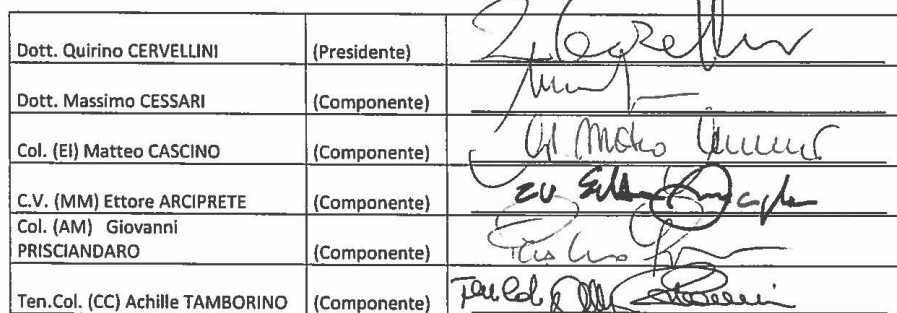 Dott. Quirino CERVELLINI (Presidente)
Dott. Massimo CESSARI (Componente)
Col. (EI) Matteo CASCINO (Componente)
C.V. (MM) Ettore ARCIPRETE (Componente)
Col. (AM) Giovanni
PRISCIANDARO (Componente)
Ten.Col. (CC) Achille TAMBORINO (Componente) Ten. Col.